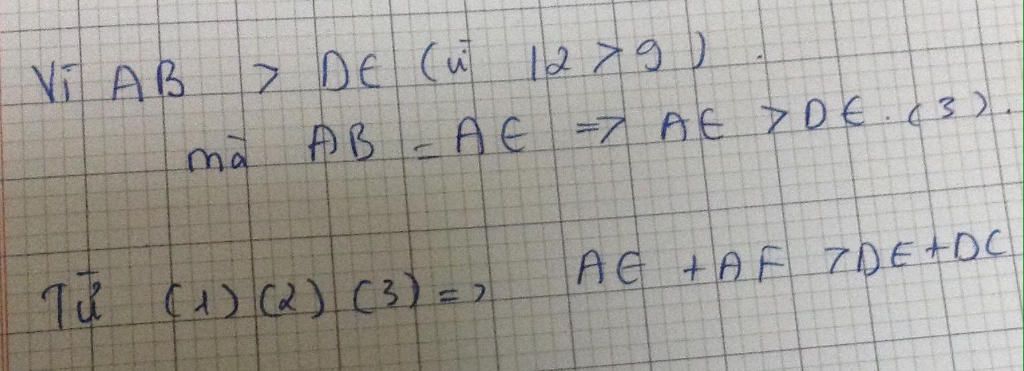 Vì AB > DE (vì 12 > 9).
mà AB = AE => AE > DE. (3).
Từ (1) (2) (3) => AE + AF > DE + DC